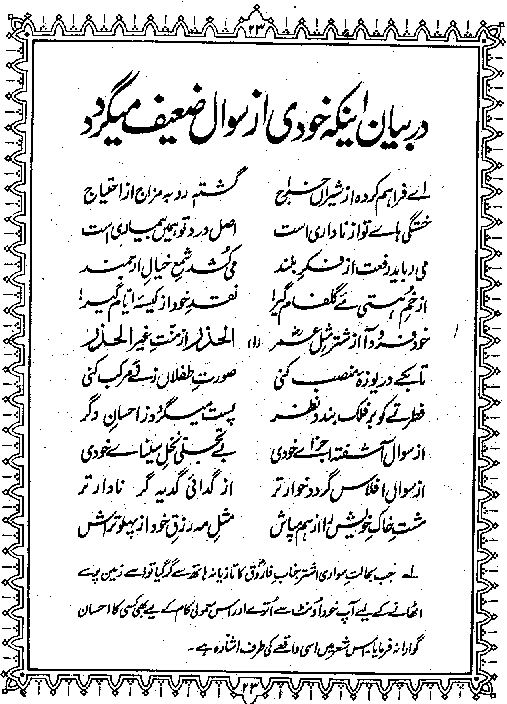 ۲۳
در بیان اینکه خودی از سوال ضعیف میگردد
اے فراہم کردہ از شیراں خراج گشتہ روبہ مزاج از احتیاج
خستگی ہاے تو از ناداری است اصل درد تو ہمیں بیماری است
می رباید رفعت از فکر بلند می کُشد شمع خیال ارجمند
از خم ہستی مے گلفام گیر نقد خود از کیسۂ ایام گیر
خود فرود آ از شتر مثل عمرؓ (۱) الحذر از منت غیر الحذر
تا بکے دریوزۂ منصب کنی صورت طفلاں ز نے مرکب کنی
فطرتے کو بر فلک بندد نظر پست میگردد ز احسان دگر
از سوال آشفتہ اجزاے خودی بے تجلی نخل سیناے خودی
از سوال افلاس گردد خوار تر از گدائی گدیہ گر نادار تر
مشت خاک خویش را از ہم مپاش مثل مہ رزق خود از پہلو تراش
۱؎ جب بحالت سواری اشتر جناب فاروقؓ کا تازیانہ ہاتھ سے گر گیا تو اسے زمین پر سے
اٹھانے کے لیے آپ خود اونٹ سے اُترے اور اس معمولی کام کے لیے بھی کسی کا احسان
گوارا نہ فرمایا۔ اس شعر میں اسی واقعے کی طرف اشارہ ہے۔
۲۳